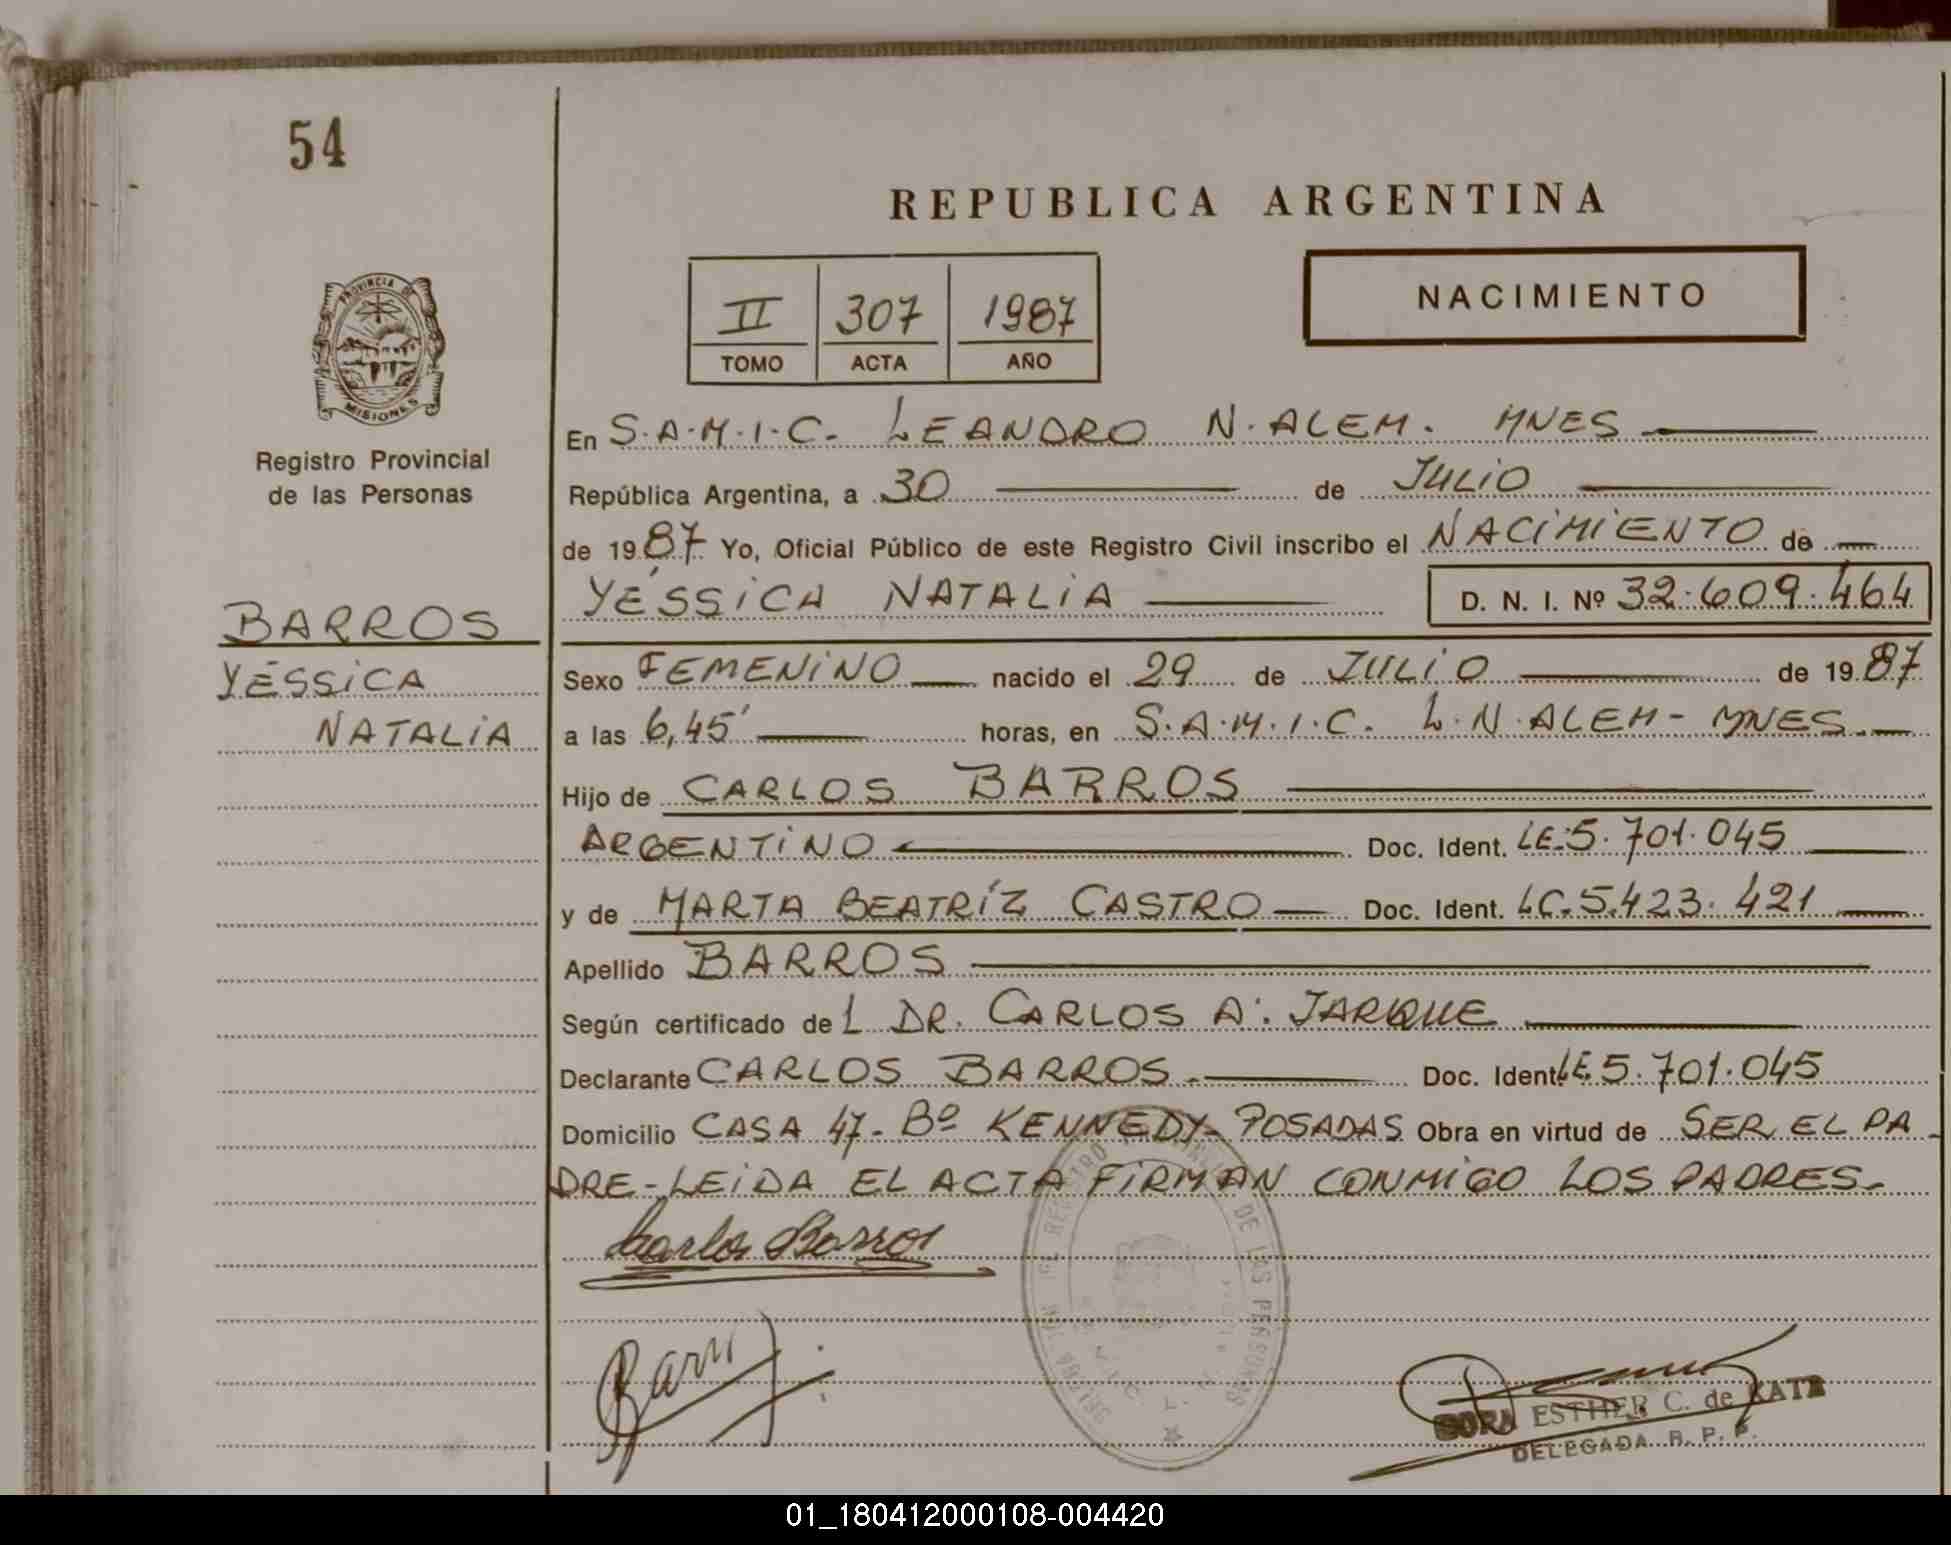 54
REPUBLICA ARGENTINA
II 307 1987
TOMO ACTA AÑO
NACIMIENTO
PROVINCIA DE
MISIONES
Registro Provincial
de las Personas
BARROS
YÉSSICA
NATALIA
En S.A.M.I.C. LEANDRO N. ALEM. MNES
República Argentina, a 30 de JULIO
de 1987 Yo, Oficial Público de este Registro Civil inscribo el NACIMIENTO de
YÉSSICA NATALIA D. N. I. Nº 32.609.464
Sexo FEMENINO nacido el 29 de JULIO de 1987
a las 6,45' horas, en S.A.M.I.C. L.N. ALEM - MNES.
Hijo de CARLOS BARROS
ARGENTINO Doc. Ident. LE.5.701.045
y de MARTA BEATRÍZ CASTRO Doc. Ident. LC.5.423.421
Apellido BARROS
Según certificado del DR. CARLOS A. JARQUE
Declarante CARLOS BARROS. Doc. Ident. LE.5.701.045
Domicilio CASA 47- Bº KENNEDY- POSADAS Obra en virtud de SER EL PA-
DRE - LEIDA EL ACTA FIRMAN CONMIGO LOS PADRES.
Carlos Barros
DE LAS PERSONAS
DORA ESTHER C. de KATZ
DELEGADA R. P. P.
01_180412000108-004420